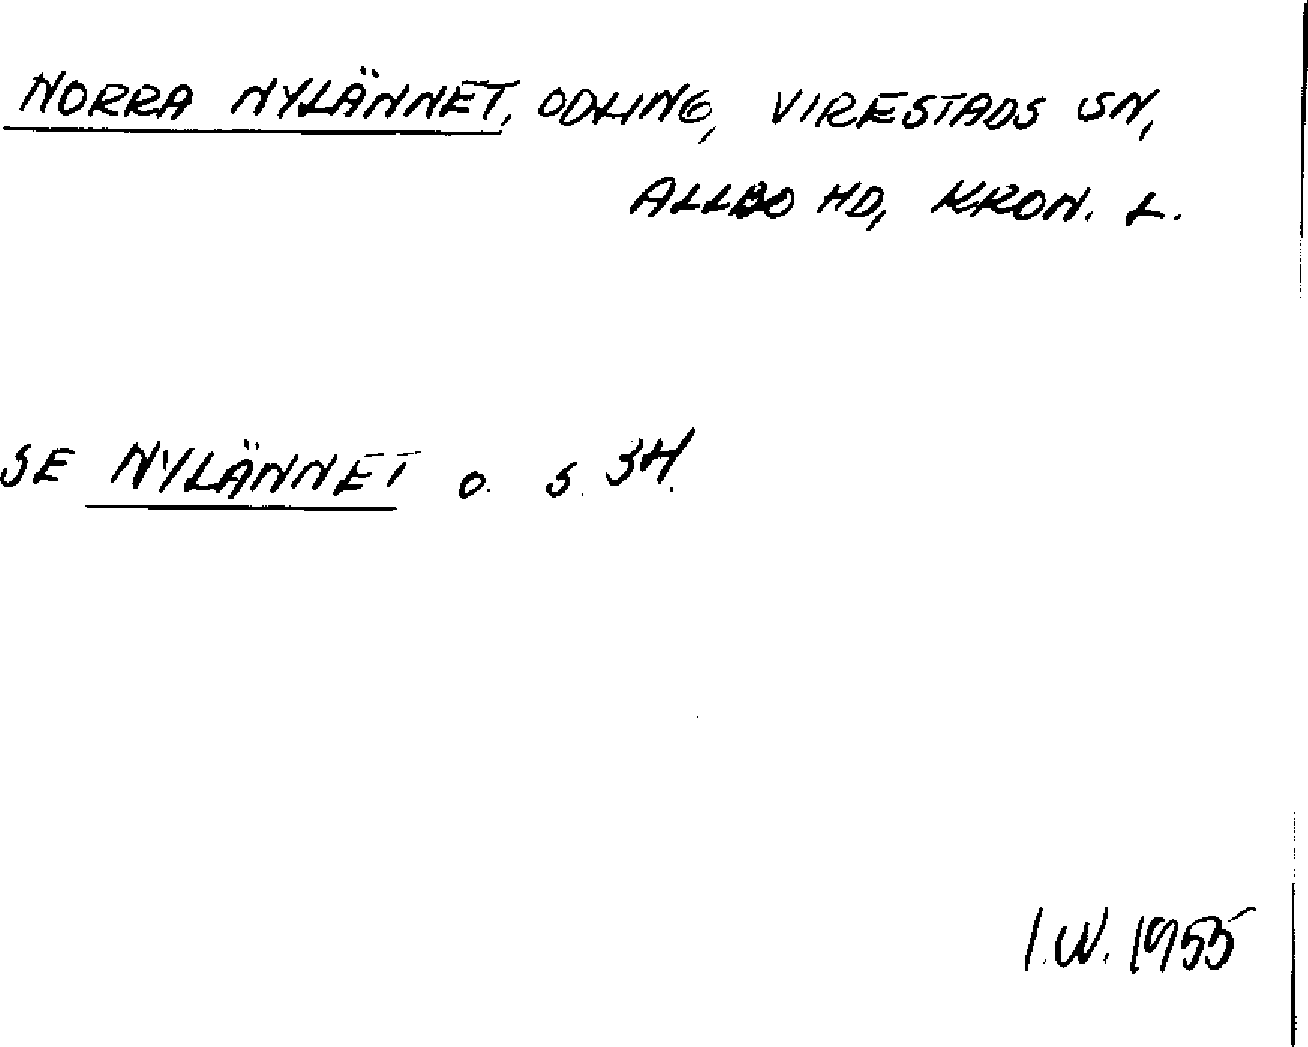 NORRA NYLÄNNET, ODLING, VIRESTADS SN,
ALLBO HD, KRON. L.
SE NYLÄNNET o. s. 34.
I.W. 1955